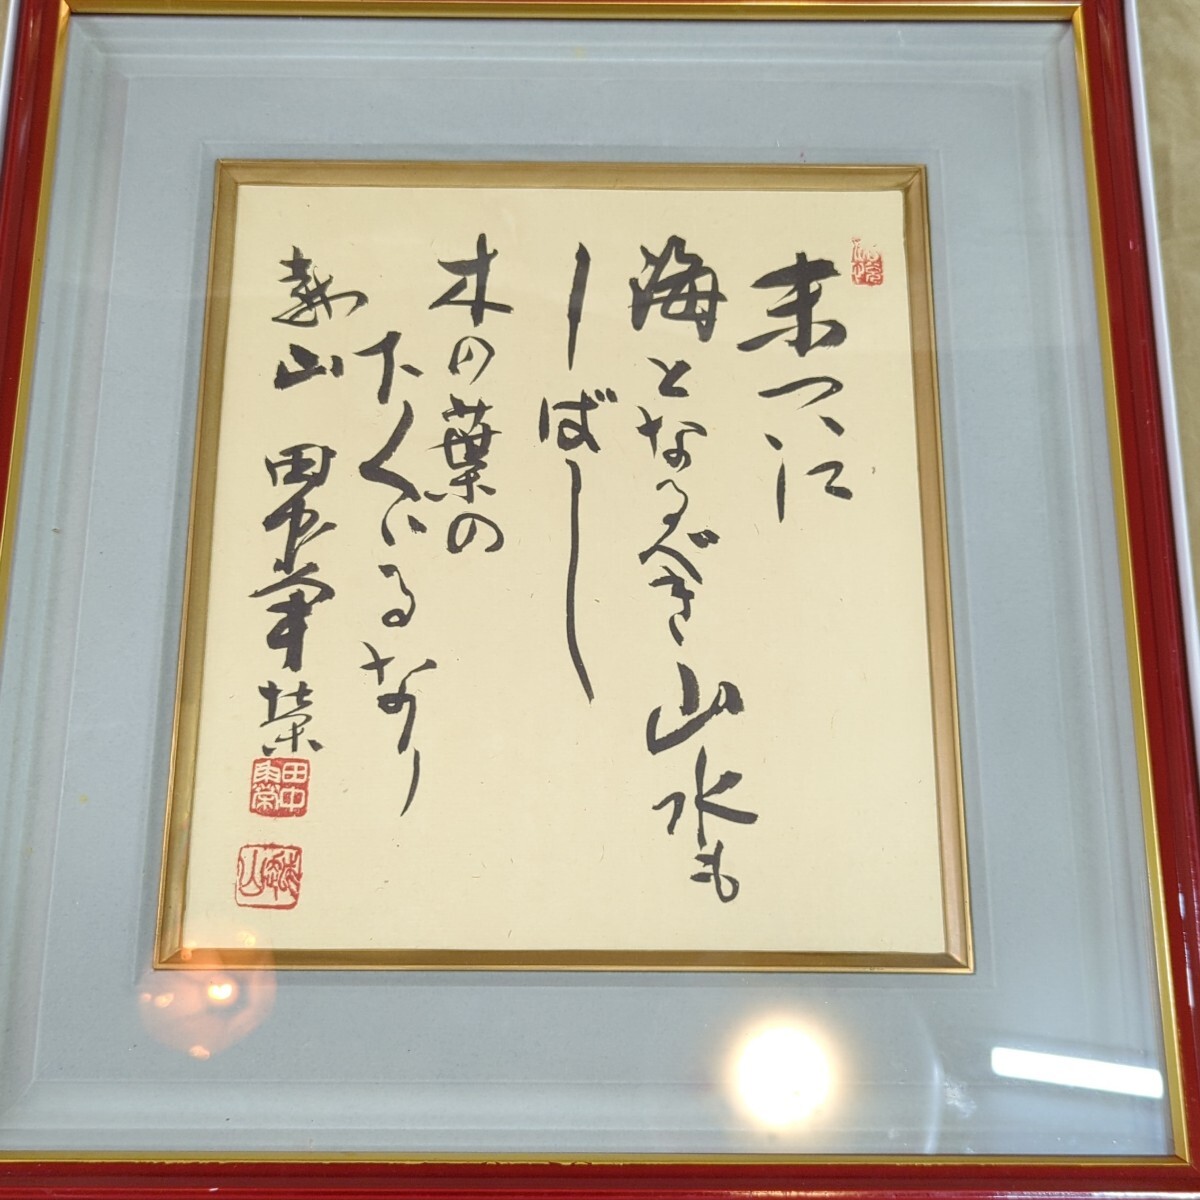 末ついに
海となるべき山水も
しばし
木の葉の
下くぐるなり
越山 田中角榮
田中角榮
越山